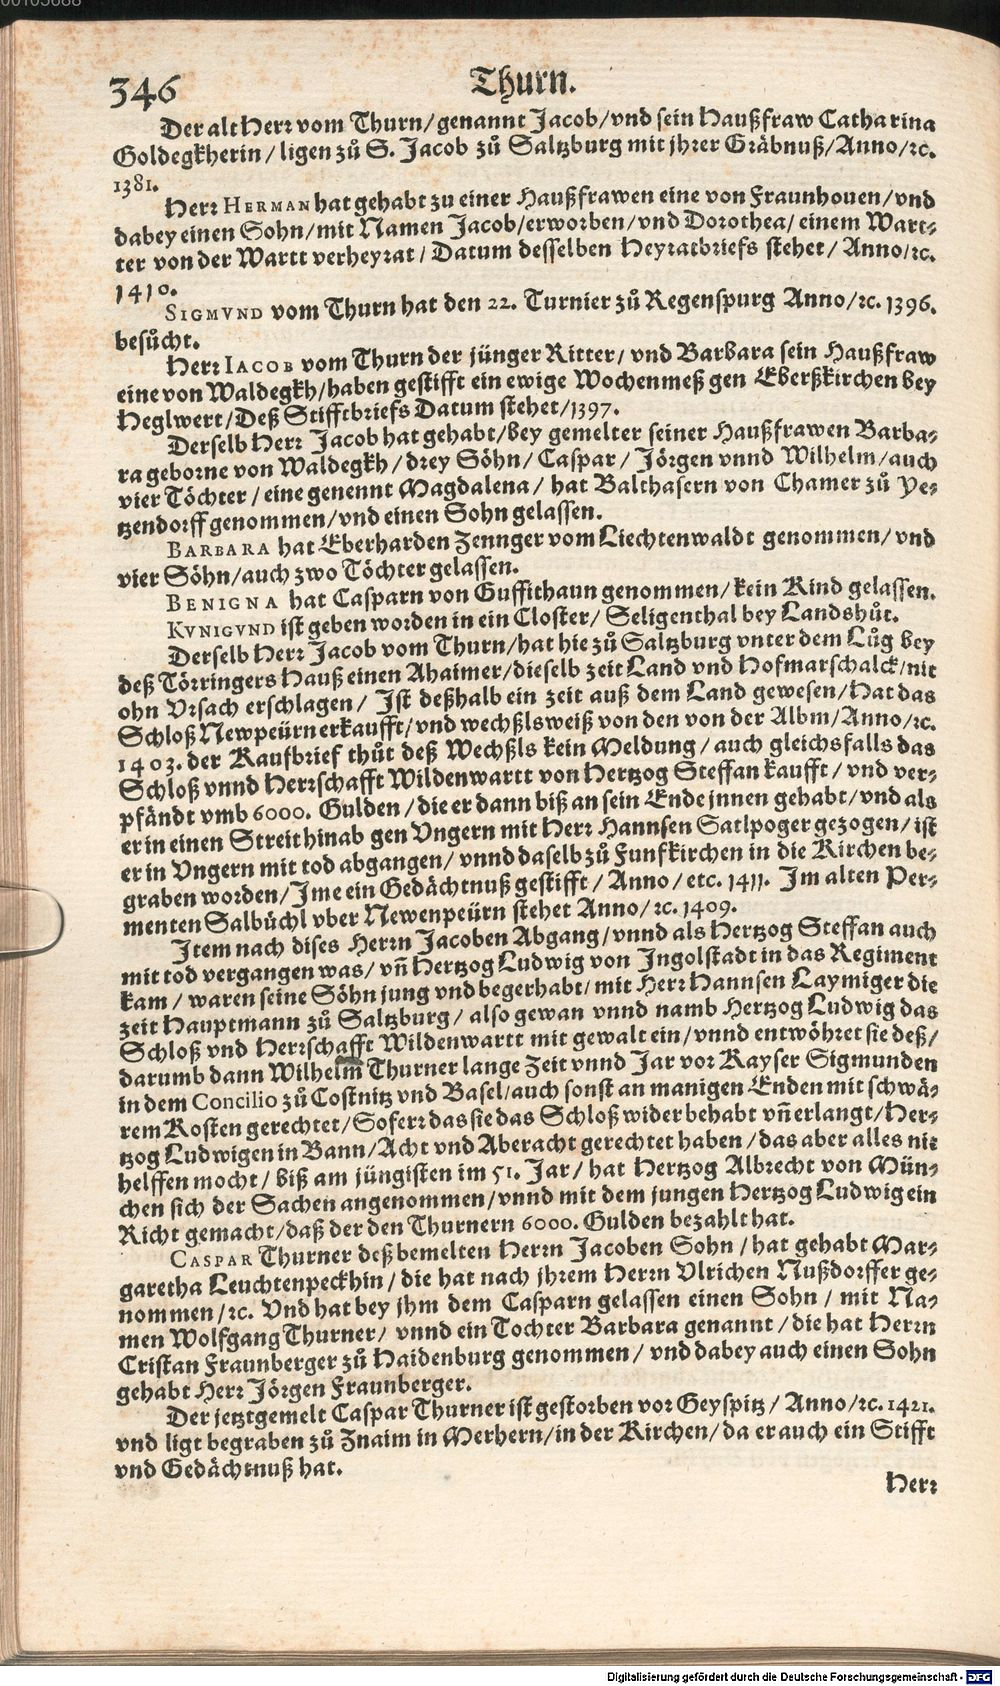 346
Thurn.
Der alt Herr vom Thurn/genannt Jacob/vnd sein Haußfraw Catharina
Goldegkherin/ligen zů S. Jacob zů Saltzburg mit jhrer Gräbnuß/Anno/ꝛc.
1381.
Herr HERMAN hat gehabt zu einer Haußfrawen eine von Fraunhouen/vnd
dabey einen Sohn/mit Namen Jacob/erworben/vnd Dorothea/einem Wart-
ter von der Wartt verheyrat/Datum desselben Heyratbriefs stehet/Anno/ꝛc.
1410.
SIGMVND vom Thurn hat den 22. Turnier zů Regenspurg Anno/ꝛc. 1396.
besůcht.
Herr IACOB vom Thurn der jünger Ritter/vnd Barbara sein Haußfraw
eine von Waldegkh/haben gestifft ein ewige Wochenmeß gen Eberßkirchen bey
Heglwert/Deß Stifftbriefs Datum stehet/1397.
Derselb Herr Jacob hat gehabt/bey gemelter seiner Haußfrawen Barba-
ra geborne von Waldegkh/drey Söhn/Caspar/Jörgen vnnd Wilhelm/auch
vier Töchter/eine genennt Magdalena/hat Balthasern von Chamer zů Ye-
tzendorff genommen/vnd einen Sohn gelassen.
BARBARA hat Eberharden Zennger vom Liechtenwaldt genommen/vnd
vier Söhn/auch zwo Töchter gelassen.
BENIGNA hat Casparn von Guffithaun genommen/kein Kind gelassen.
KVNIGVND ist geben worden in ein Closter/Seligenthal bey Landshůt.
Derselb Herr Jacob vom Thurn/hat hie zů Saltzburg vnter dem Lůg bey
deß Törringers Hauß einen Ahaimer/dieselb zeit Land vnd Hofmarschalck/nit
ohn Vrsach erschlagen/Ist deßhalb ein zeit auß dem Land gewesen/Hat das
Schloß Newpeürn erkaufft/vnd wechßlsweiß von den von der Albm/Anno/ꝛc.
1403. der Kaufbrief thůt deß Wechßls kein Meldung/auch gleichsfalls das
Schloß vnnd Herrschafft Wildenwartt von Hertzog Steffan kaufft/vnd ver-
pfändt vmb 6000. Gulden/die er dann biß an sein Ende jnnen gehabt/vnd als
er in einen Streit hinab gen Vngern mit Herr Hannsen Satlpoger gezogen/ist
er in Vngern mit tod abgangen/vnnd daselb zů Funfkirchen in die Kirchen be-
graben worden/Ime ein Gedächtnuß gestifft/Anno/etc. 1411. Im alten Per-
menten Salbüchl vber Newenpeürn stehet Anno/ꝛc. 1409.
Item nach dises Herrn Jacoben Abgang/vnnd als Hertzog Steffan auch
mit tod vergangen was/vñ Hertzog Ludwig von Ingolstadt in das Regiment
kam/waren seine Söhn jung vnd begerhabt/mit Herr Hannsen Laymiger die
zeit Hauptmann zů Saltzburg/also gewan vnnd namb Hertzog Ludwig das
Schloß vnd Herrschafft Wildenwartt mit gewalt ein/vnnd entwöhret sie deß/
darumb dann Wilhelm Thurner lange Zeit vnnd Jar vor Kayser Sigmunden
in dem Concilio zů Costnitz vnd Basel/auch sonst an manigen Enden mit schwä-
rem Kosten gerechtet/Soferr das sie das Schloß wider behabt vñ erlangt/Her-
tzog Ludwigen in Bann/Acht vnd Aberacht gerechtet haben/das aber alles nit
helffen mocht/biß am jüngisten im 51. Jar/hat Hertzog Albrecht von Mün-
chen sich der Sachen angenommen/vnnd mit dem jungen Hertzog Ludwig ein
Richt gemacht/daß der den Thurnern 6000. Gulden bezahlt hat.
CASPAR Thurner deß bemelten Herrn Jacoben Sohn/hat gehabt Mar-
garetha Leuchtenpeckhin/die hat nach jhrem Herrn Vlrichen Nußdorffer ge-
nommen/ꝛc. Vnd hat bey jhm dem Casparn gelassen einen Sohn/mit Na-
men Wolfgang Thurner/vnnd ein Tochter Barbara genannt/die hat Herrn
Cristan Fraunberger zů Haidenburg genommen/vnd dabey auch einen Sohn
gehabt Herr Jörgen Fraunberger.
Der jetztgemelt Caspar Thurner ist gestorben vor Geyspitz/Anno/ꝛc. 1421.
vnd ligt begraben zů Znaim in Merhern/in der Kirchen/da er auch ein Stifft
vnd Gedächtnuß hat.
Herr
Digitalisierung gefördert durch die Deutsche Forschungsgemeinschaft - DFG